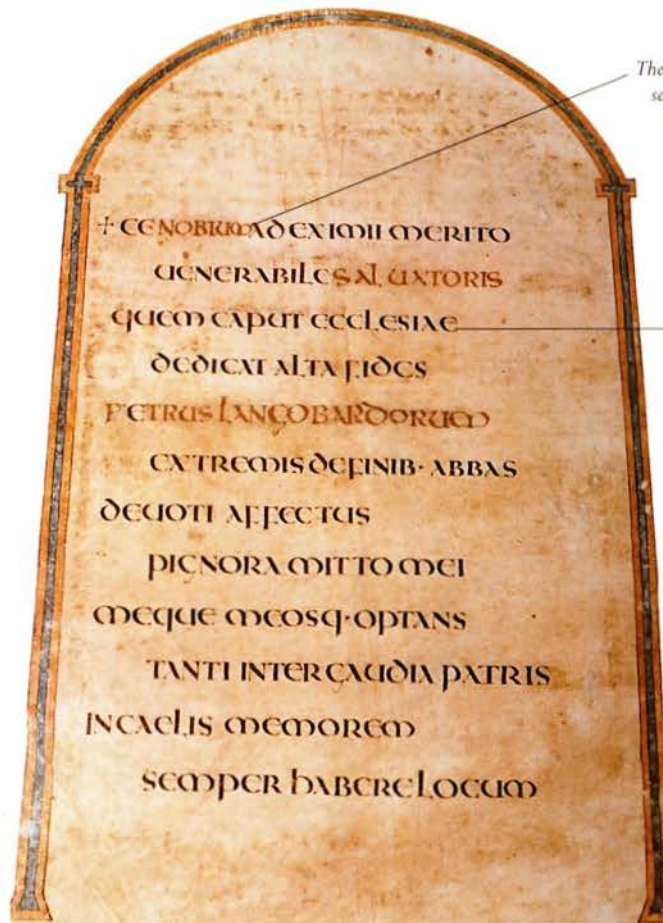 The
se
✝ CENOBIUM AD EXIMII MERITO
UENERABILE SALUATORIS
QUEM CAPUT ECCLESIAE
DEDICAT ALTA FIDES
PETRUS LANGOBARDORUM
EXTREMIS DE FINIB· ABBAS
DEUOTI AFFECTUS
PIGNORA MITTO MEI
MEQUE MEOSQ· OPTANS
TANTI INTER GAUDIA PATRIS
IN CAELIS MEMOREM
SEMPER HABERE LOCUM